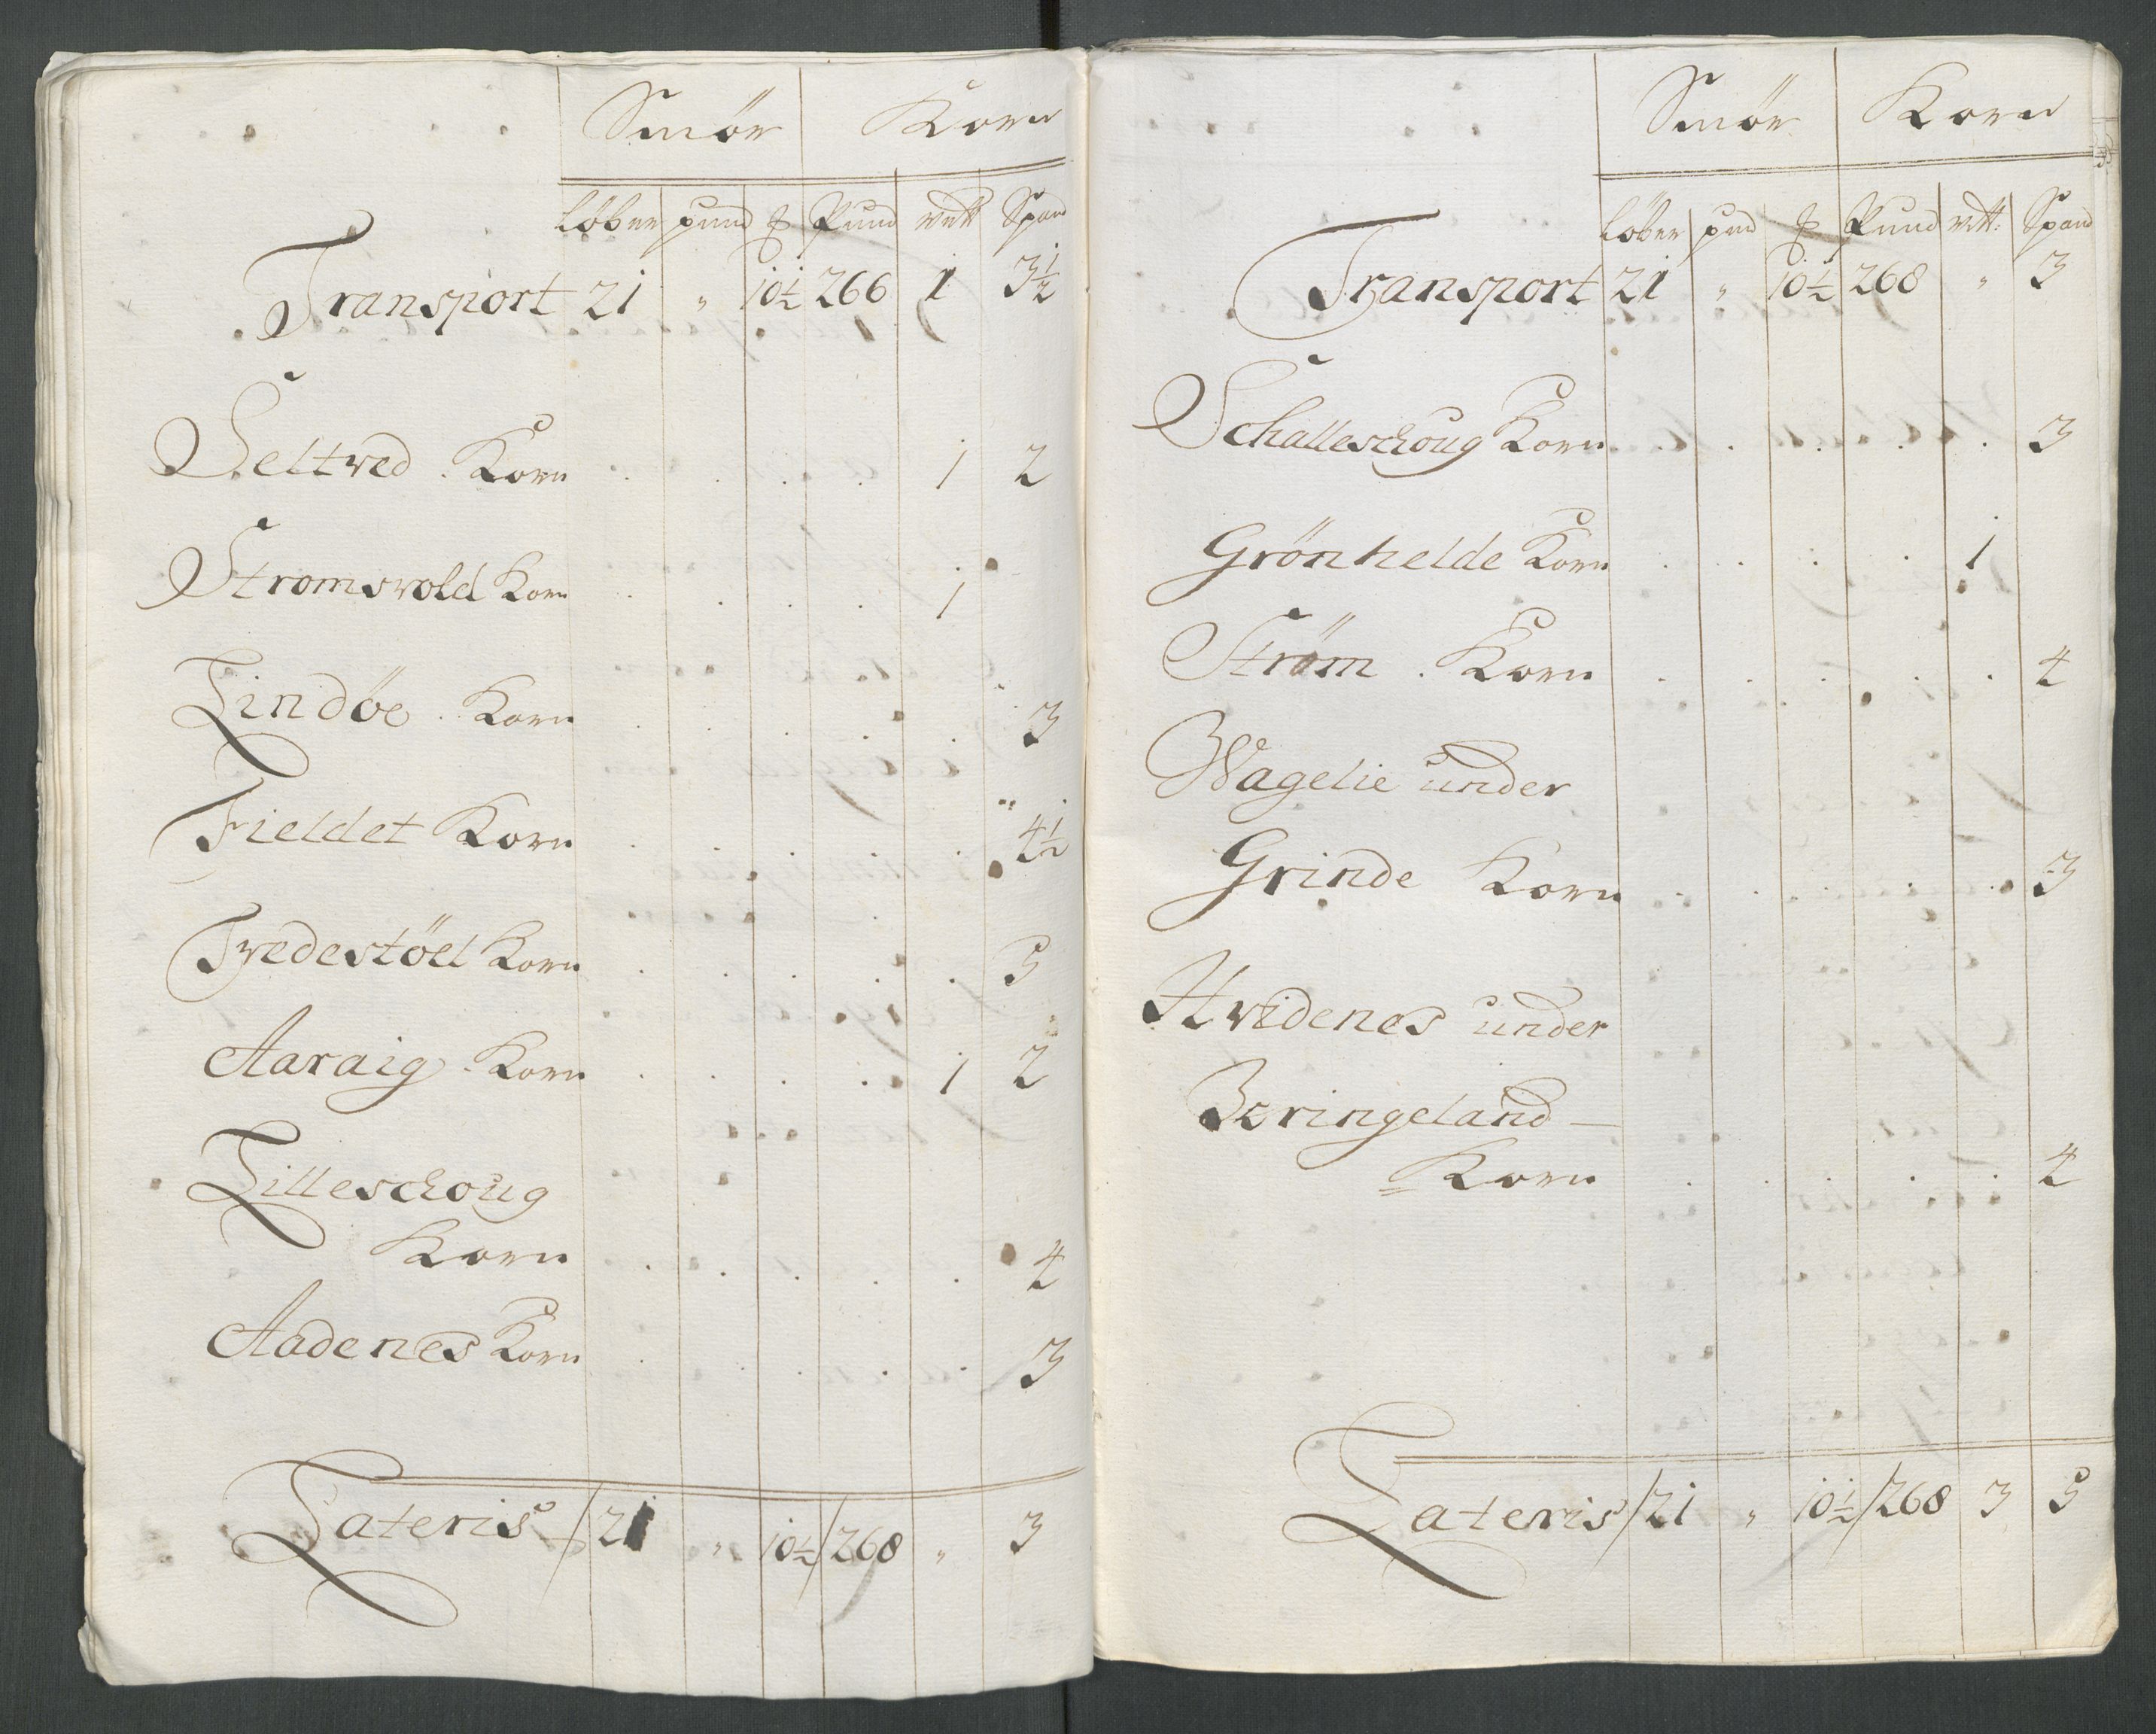 Smör Korn
löber pund ℔ Pund vett Spand
Transport 21 " 10½ 266 1 3½
Seltved . Korn . . . . 1 2
Stromsvold Korn . . . . 1
Lindöe . Korn . . . . . 3
Fieldet Korn . . . . . 4½
Tvedestöel Korn . . . . . 5
Aaraig . Korn . . . . 1 2
Lilleschoug
Korn . . . . . 4
Aadenes Korn . . . . . 3
Lateris /21 " 10½/268 " 3
Smör Korn
löber pnd ℔ Pund vtt: Spand
Transport 21 " 10½ 268 " 3
Schalleschoug Korn . . . . . 3
Grönhelde Korn . . . . 1
Ström . Korn . . . . . 4
Wagelie under
Grinde Korn . . . . . 3
Hvidenes under
Beringeland —
= Korn . . . . . 4
Lateris /21 " 10½/268 3 5